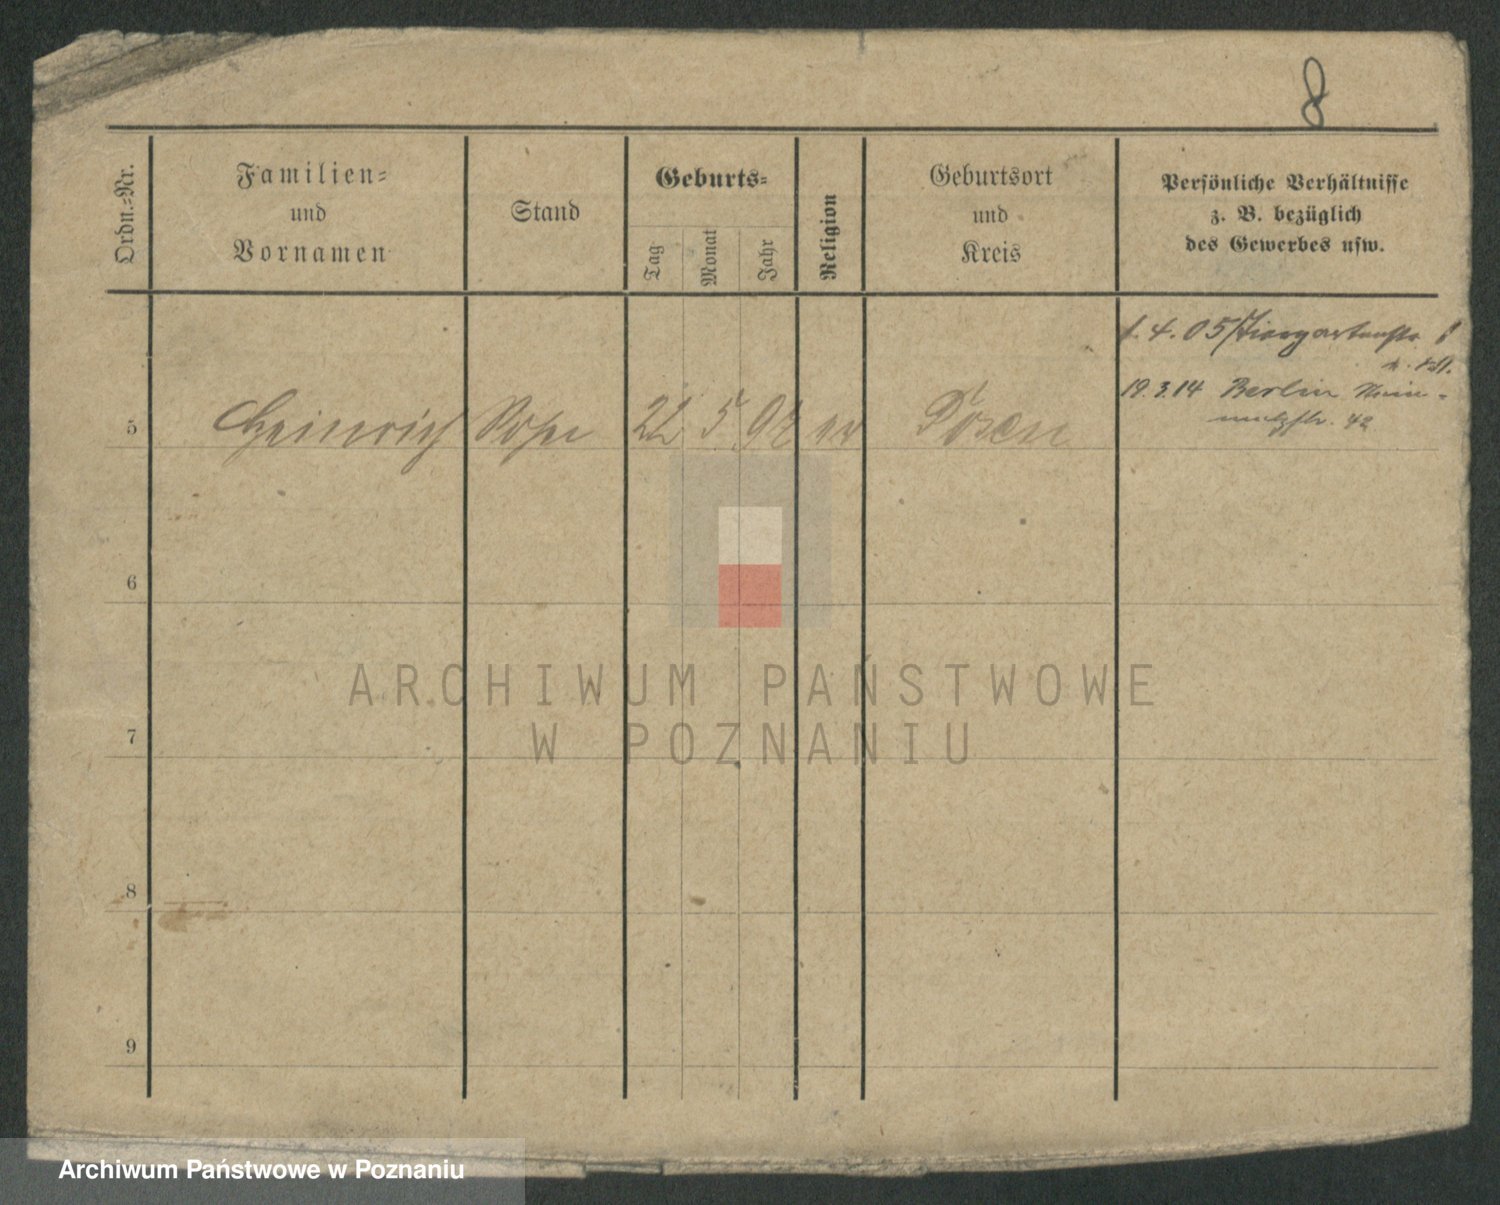 8
Ordn.-Nr.
Familien-
und
Vornamen
Stand
Geburts-
Tag
Monat
Jahr
Religion
Geburtsort
und
Kreis
Persönliche Verhältnisse
z. B. bezüglich
des Gewerbes usw.
1. 4. 05 Tiergartenstr
19.3.14 Berlin
str. 42
5 Heinrich 5 ev Posen
6
7
8
9
ARCHIWUM PAŃSTWOWE
W POZNANIU
Archiwum Państwowe w Poznaniu